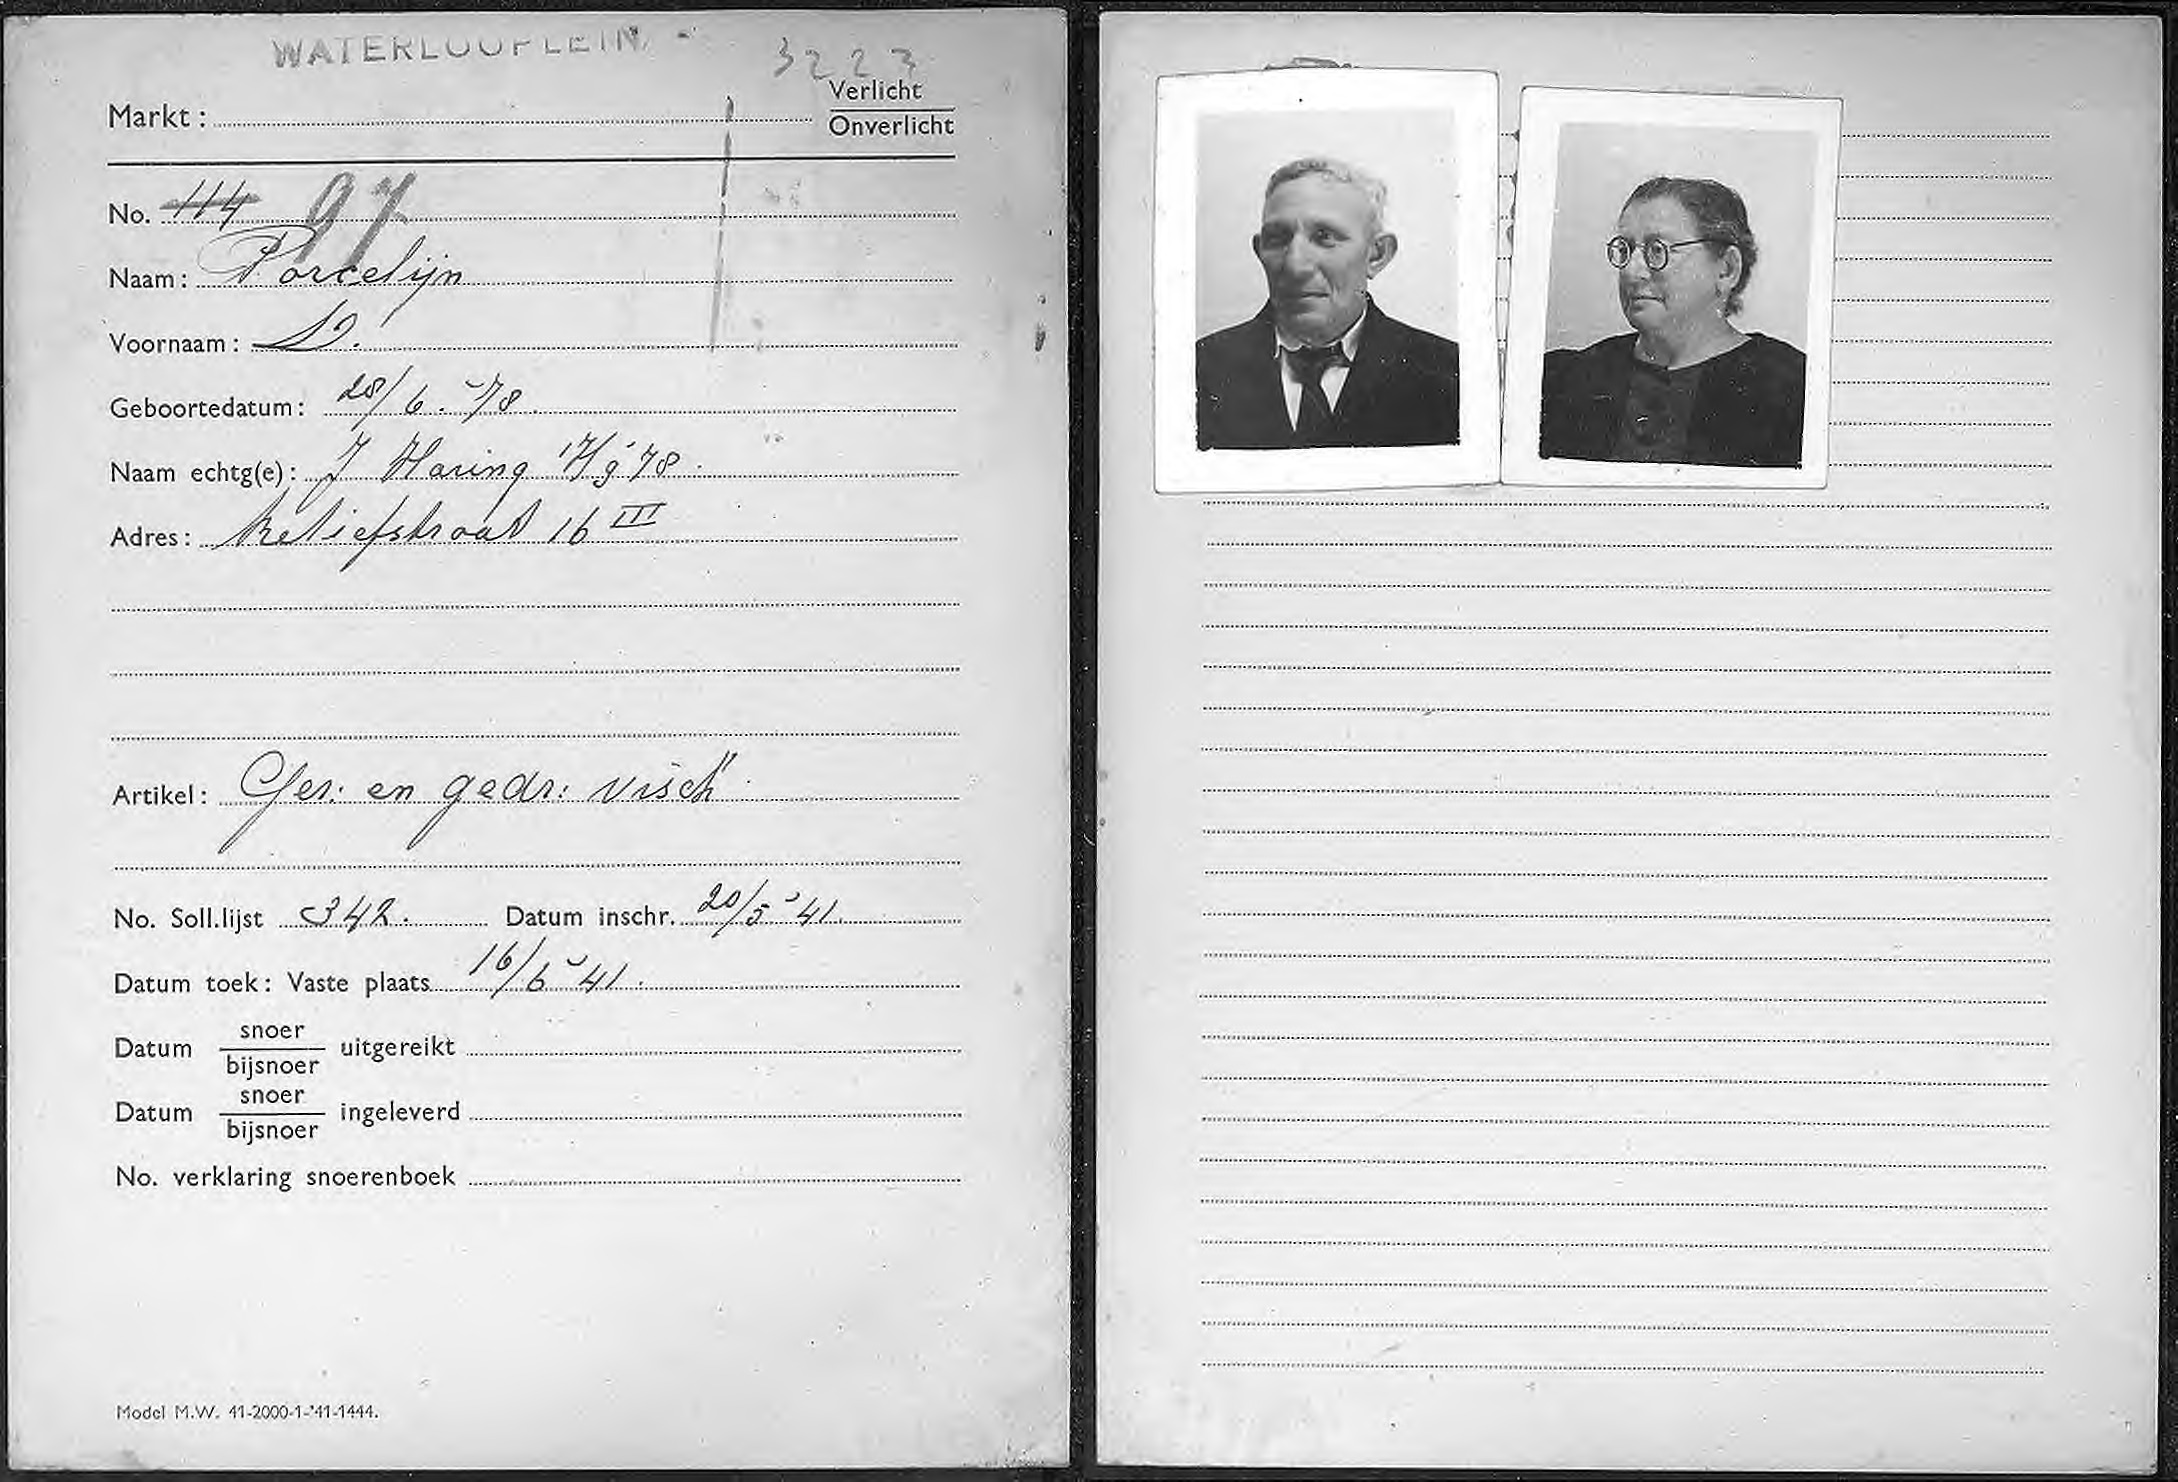 WATERLOOPLEIN
3223
Verlicht
Markt :
Onverlicht
No. 114 97
Naam : Porcelijn
Voornaam : D.
Geboortedatum : 28/6. '78.
Naam echtg(e) : J Haring 17/9 '78.
Adres : Retiefstraat 16 III
Artikel : Ger. en gedr. visch
No. Soll.lijst 342. Datum inschr. 20/5 '41.
Datum toek : Vaste plaats 16/6 '41.
Datum snoer/bijsnoer uitgereikt
Datum snoer/bijsnoer ingeleverd
No. verklaring snoerenboek
Model M.W. 41-2000-1-'41-1444.